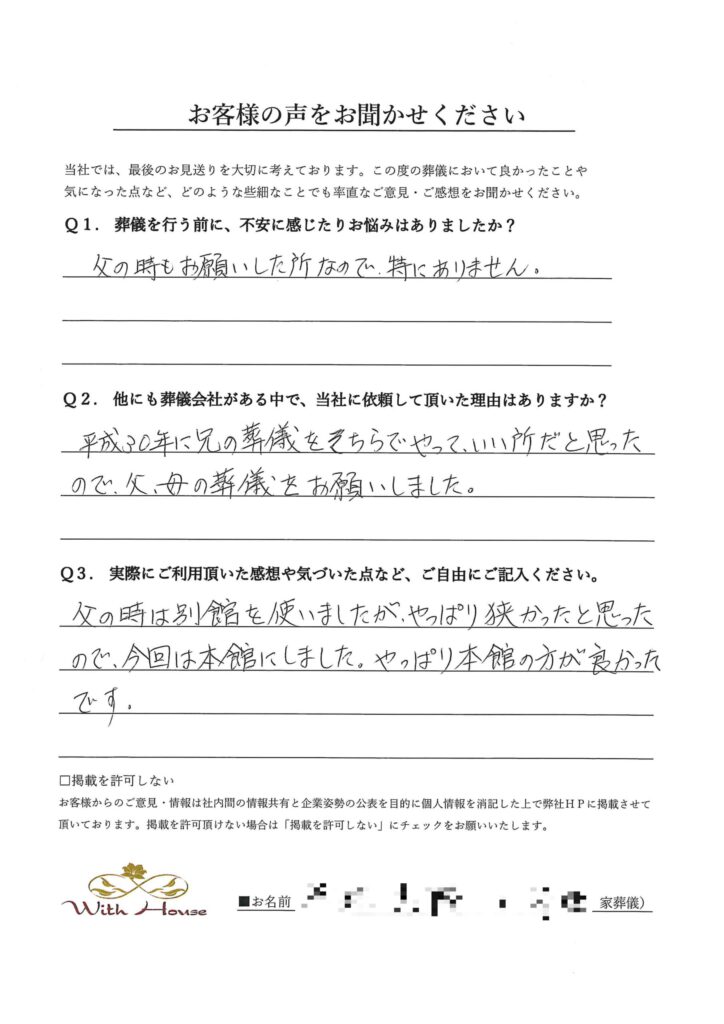 お客様の声をお聞かせください
当社では、最後のお見送りを大切に考えております。この度の葬儀において良かったことや
気になった点など、どのような些細なことでも率直なご意見・ご感想をお聞かせください。
Q1. 葬儀を行う前に、不安に感じたりお悩みはありましたか？
父の時もお願いした所なので、特にありません。
Q2. 他にも葬儀会社がある中で、当社に依頼して頂いた理由はありますか？
平成30年に兄の葬儀をそちらでやって、いい所だと思った
ので、父、母の葬儀をお願いしました。
Q3. 実際にご利用頂いた感想や気づいた点など、ご自由にご記入ください。
父の時は別館を使いましたが、やっぱり狭かったと思った
ので、今回は本館にしました。やっぱり本館の方が良かった
です。
□掲載を許可しない
お客様からのご意見・情報は社内間の情報共有と企業姿勢の公表を目的に個人情報を消記した上で弊社HPに掲載させて
頂いております。掲載を許可頂けない場合は「掲載を許可しない」にチェックをお願いいたします。
With House
■お名前 家葬儀）